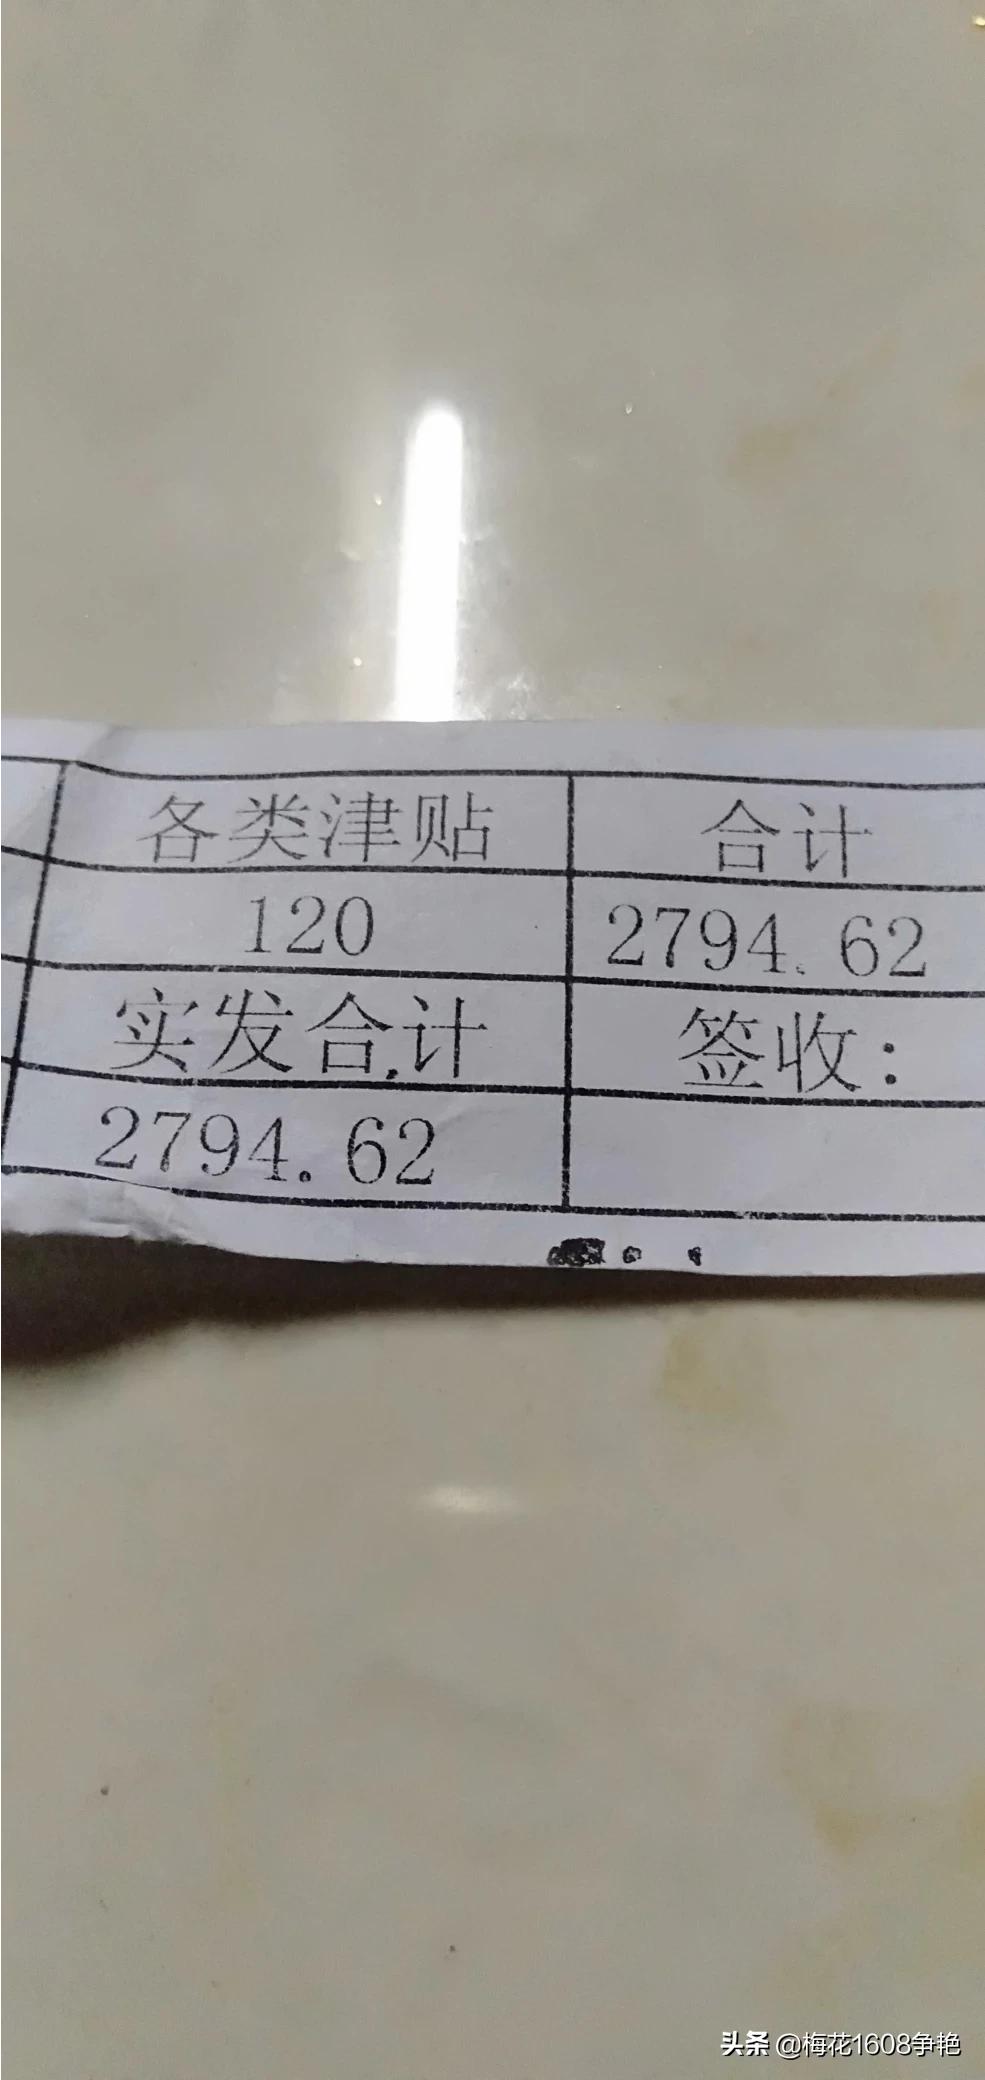 各类津贴 合计
120 2794.62
实发合计 签收：
2794.62
头条 @梅花1608争艳